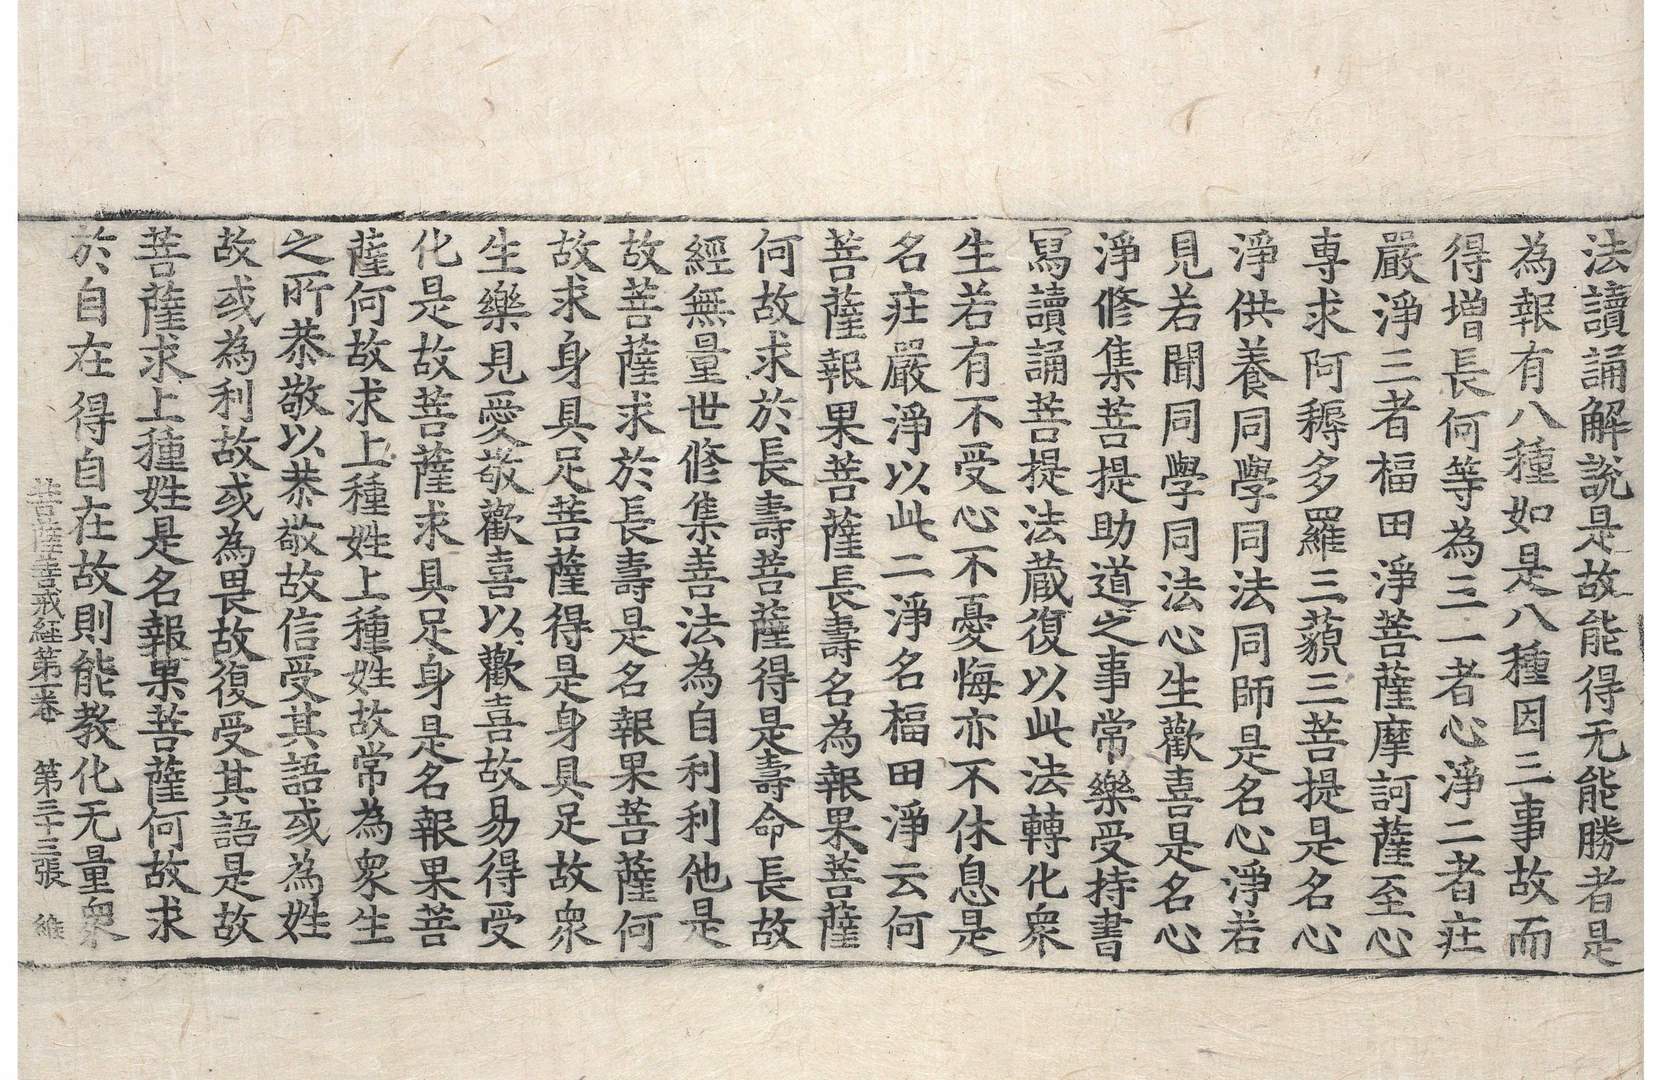 法讀誦解說是故能得无能勝者是
為報有八種如是八種因三事故而
得增長何等為三一者心淨二者莊
嚴淨三者福田淨菩薩摩訶薩至心
專求阿耨多羅三藐三菩提是名心
淨供養同學同法同師是名心淨若
見若聞同學同法心生歡喜是名心
淨修集菩提助道之事常樂受持書
寫讀誦菩提法藏復以此法轉化衆
生若有不受心不憂悔亦不休息是
名莊嚴淨以此二淨名福田淨云何
菩薩報果菩薩長壽名為報果菩薩
何故求於長壽菩薩得是壽命長故
經無量世修集善法為自利利他是
故菩薩求於長壽是名報果菩薩何
故求身具足菩薩得是身具足故衆
生樂見愛敬歡喜以歡喜故易得受
化是故菩薩求具足身是名報果菩
薩何故求上種姓上種姓故常為衆生
之所恭敬以恭敬故信受其語或為姓
故或為利故或為畏故復受其語是故
菩薩求上種姓是名報果菩薩何故求
於自在得自在故則能教化无量衆
菩薩善戒経第一卷 第三十三張 維